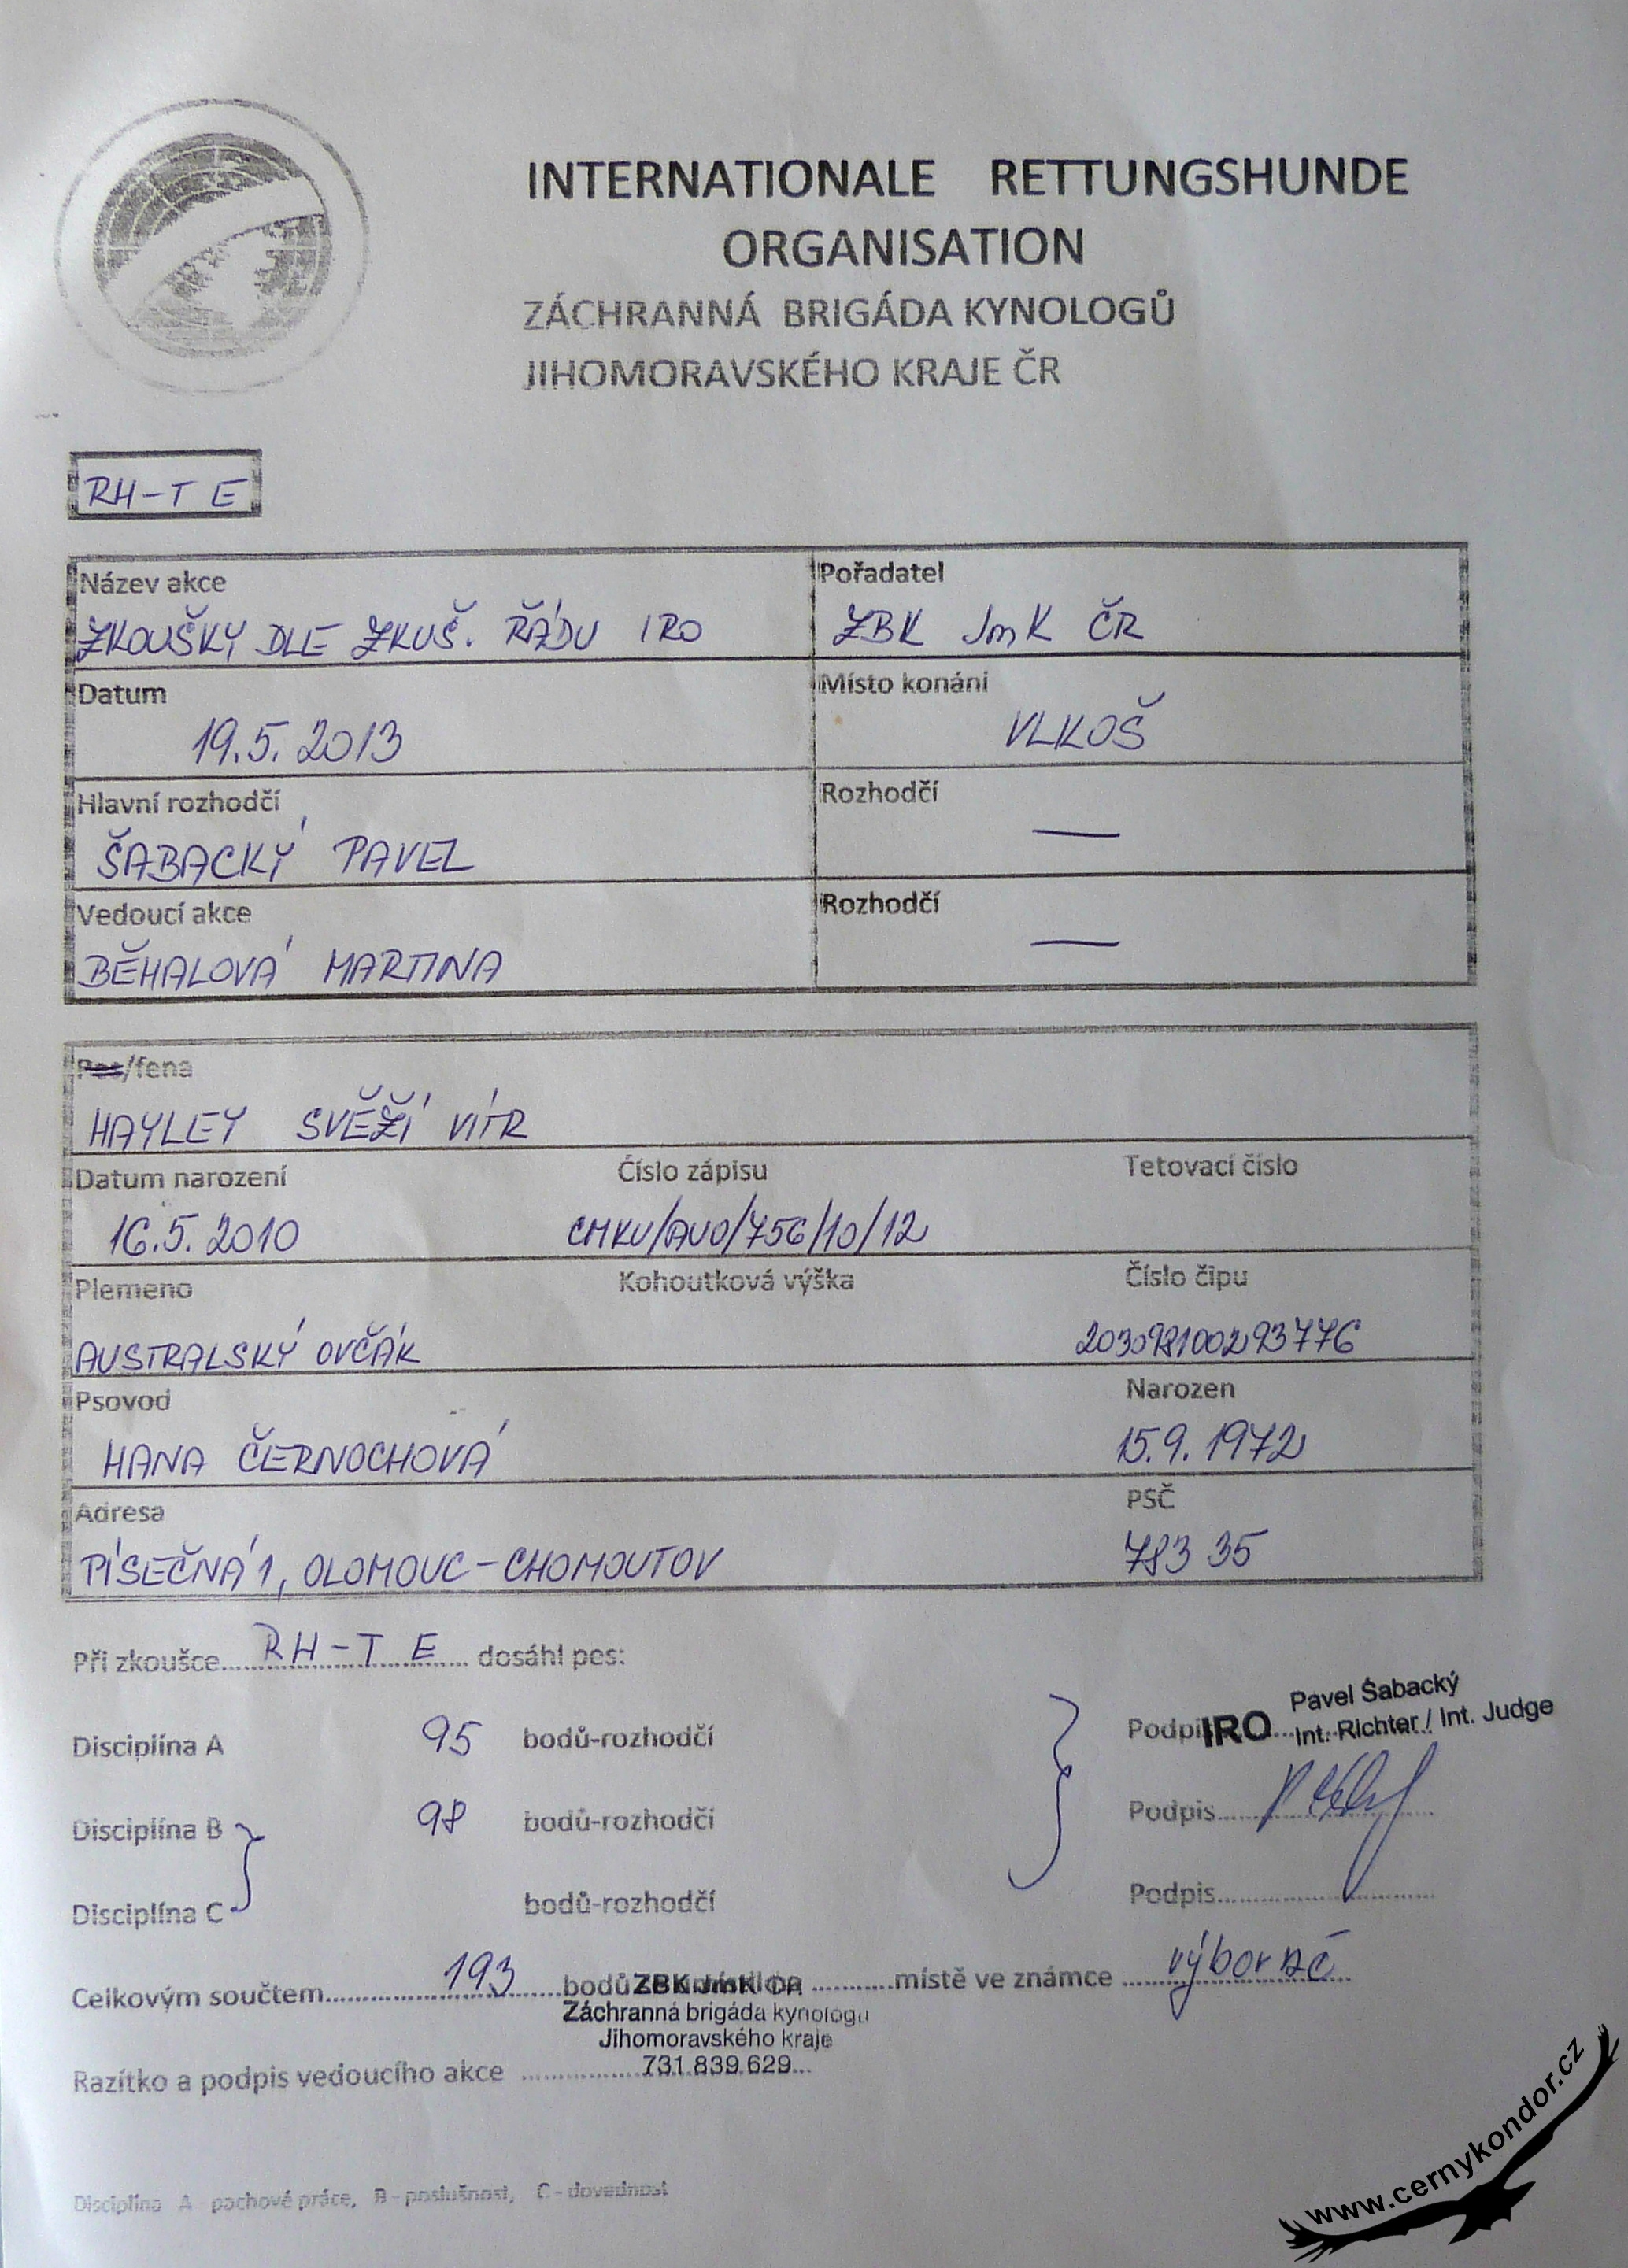 INTERNATIONALE RETTUNGSHUNDE
ORGANISATION
ZÁCHRANNÁ BRIGÁDA KYNOLOGŮ
JIHOMORAVSKÉHO KRAJE ČR
RH-T E
Název akce
ZKOUŠKY DLE ZKUŠ. ŘÁDU IRO
Pořadatel
ZBK JmK ČR
Datum
19.5. 2013
Místo konání
VLKOŠ
Hlavní rozhodčí
ŠABACKÝ PAVEL
Rozhodčí
—
Vedoucí akce
BĚHALOVÁ MARTINA
Rozhodčí
—
Pes/fena
HAYLEY SVĚŽÍ VÍTR
Datum narození Číslo zápisu Tetovací číslo
16.5. 2010 CMKU/AUO/756/10/12
Plemeno Kohoutková výška Číslo čipu
AUSTRALSKÝ OVČÁK 203098100293776
Psovod Narozen
HANA ČERNOCHOVÁ 15.9. 1972
Adresa PSČ
PÍSEČNÁ 1, OLOMOUC-CHOMOUTOV 783 35
Při zkoušce RH-T E dosáhl pes:
Pavel Šabacký
Disciplína A 95 bodů-rozhodčí IRO Int. Richter / Int. Judge
Disciplína B 98 bodů-rozhodčí Podpis
Disciplína C bodů-rozhodčí Podpis
Celkovým součtem 193 bodů místě ve známce výborně
ZBK JmK
Záchranná brigáda kynologů
Jihomoravského kraje
Razítko a podpis vedoucího akce 731 839 629
Disciplína A - pachové práce, B - poslušnost, C - dovednost
www.cernykondor.cz